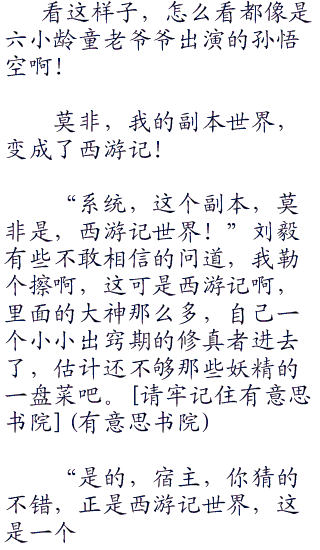 看这样子，怎么看都像是
六小龄童老爷爷出演的孙悟
空啊！
莫非，我的副本世界，
变成了西游记！
“系统，这个副本，莫
非是，西游记世界！”刘毅
有些不敢相信的问道，我勒
个擦啊，这可是西游记啊，
里面的大神那么多，自己一
个小小出窍期的修真者进去
了，估计还不够那些妖精的
一盘菜吧。[请牢记住有意思
书院] (有意思书院)
“是的，宿主，你猜的
不错，正是西游记世界，这
是一个